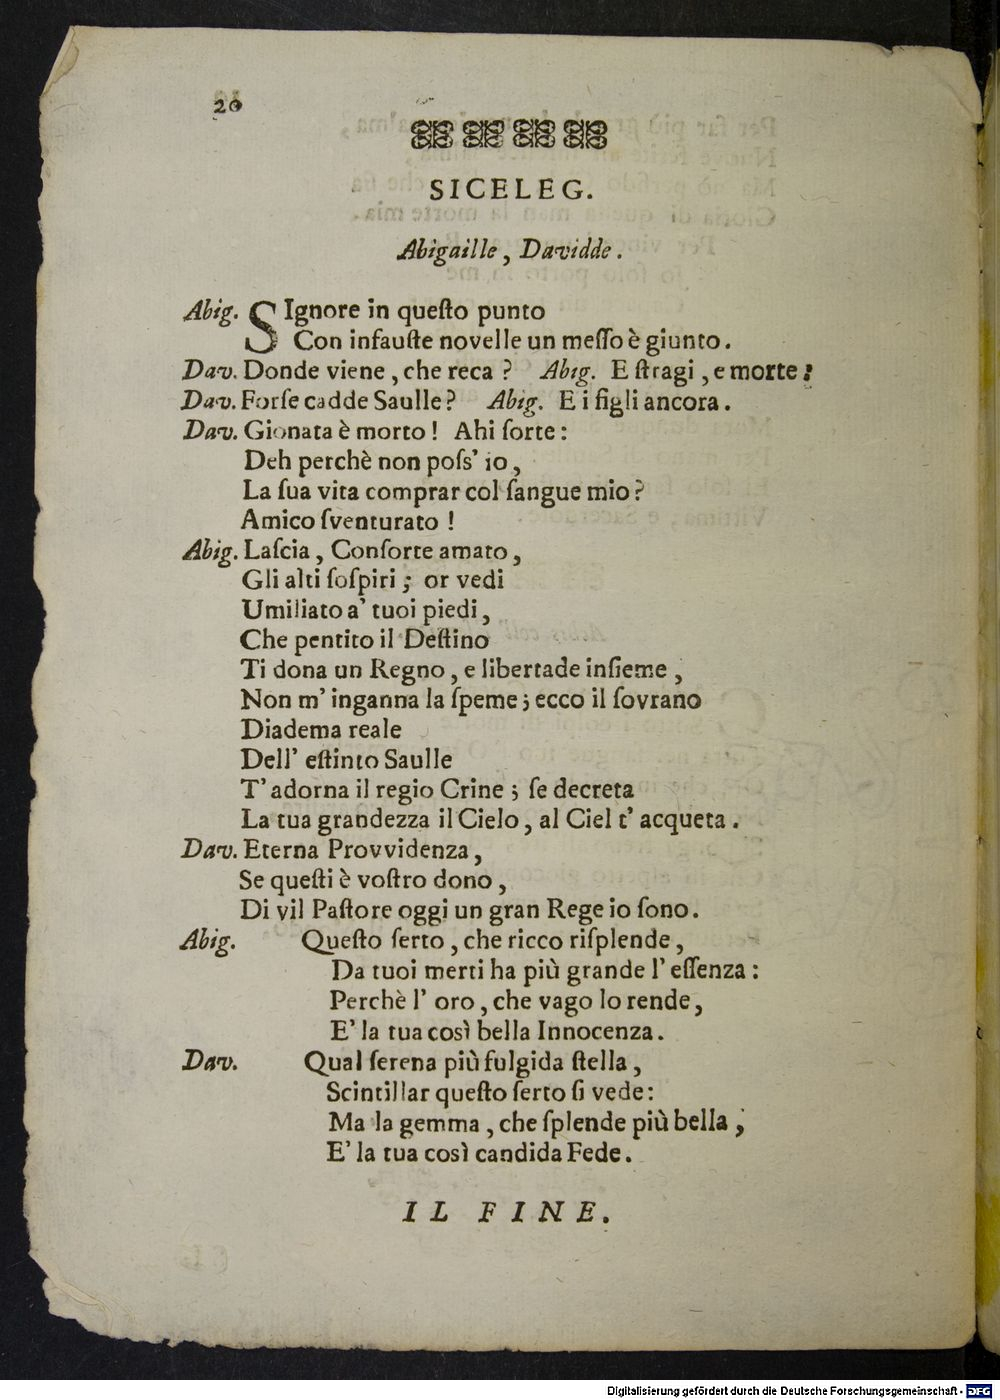 20
SICELEG.
Abigaille, Davidde.
Abig. SIgnore in queſto punto
Con infauſte novelle un meſſo è giunto.
Dav. Donde viene, che reca? Abig. E ſtragi, e morte:
Dav. Forſe cadde Saulle? Abig. E i figli ancora.
Dav. Gionata è morto! Ahi ſorte:
Deh perchè non poſs' io,
La ſua vita comprar col ſangue mio?
Amico ſventurato!
Abig. Laſcia, Conſorte amato,
Gli alti ſoſpiri; or vedi
Umiliato a' tuoi piedi,
Che pentito il Deſtino
Ti dona un Regno, e libertade inſieme,
Non m' inganna la ſpeme; ecco il ſovrano
Diadema reale
Dell' eſtinto Saulle
T' adorna il regio Crine; ſe decreta
La tua grandezza il Cielo, al Ciel t' acqueta.
Dav. Eterna Provvidenza,
Se queſti è voſtro dono,
Di vil Paſtore oggi un gran Rege io ſono.
Abig. Queſto ſerto, che ricco riſplende,
Da tuoi merti ha più grande l' eſſenza:
Perchè l' oro, che vago lo rende,
E' la tua così bella Innocenza.
Dav. Qual ſerena più fulgida ſtella,
Scintillar queſto ſerto ſi vede:
Ma la gemma, che ſplende più bella,
E' la tua così candida Fede.
IL FINE.
Digitalisierung gefördert durch die Deutsche Forschungsgemeinschaft - DFG